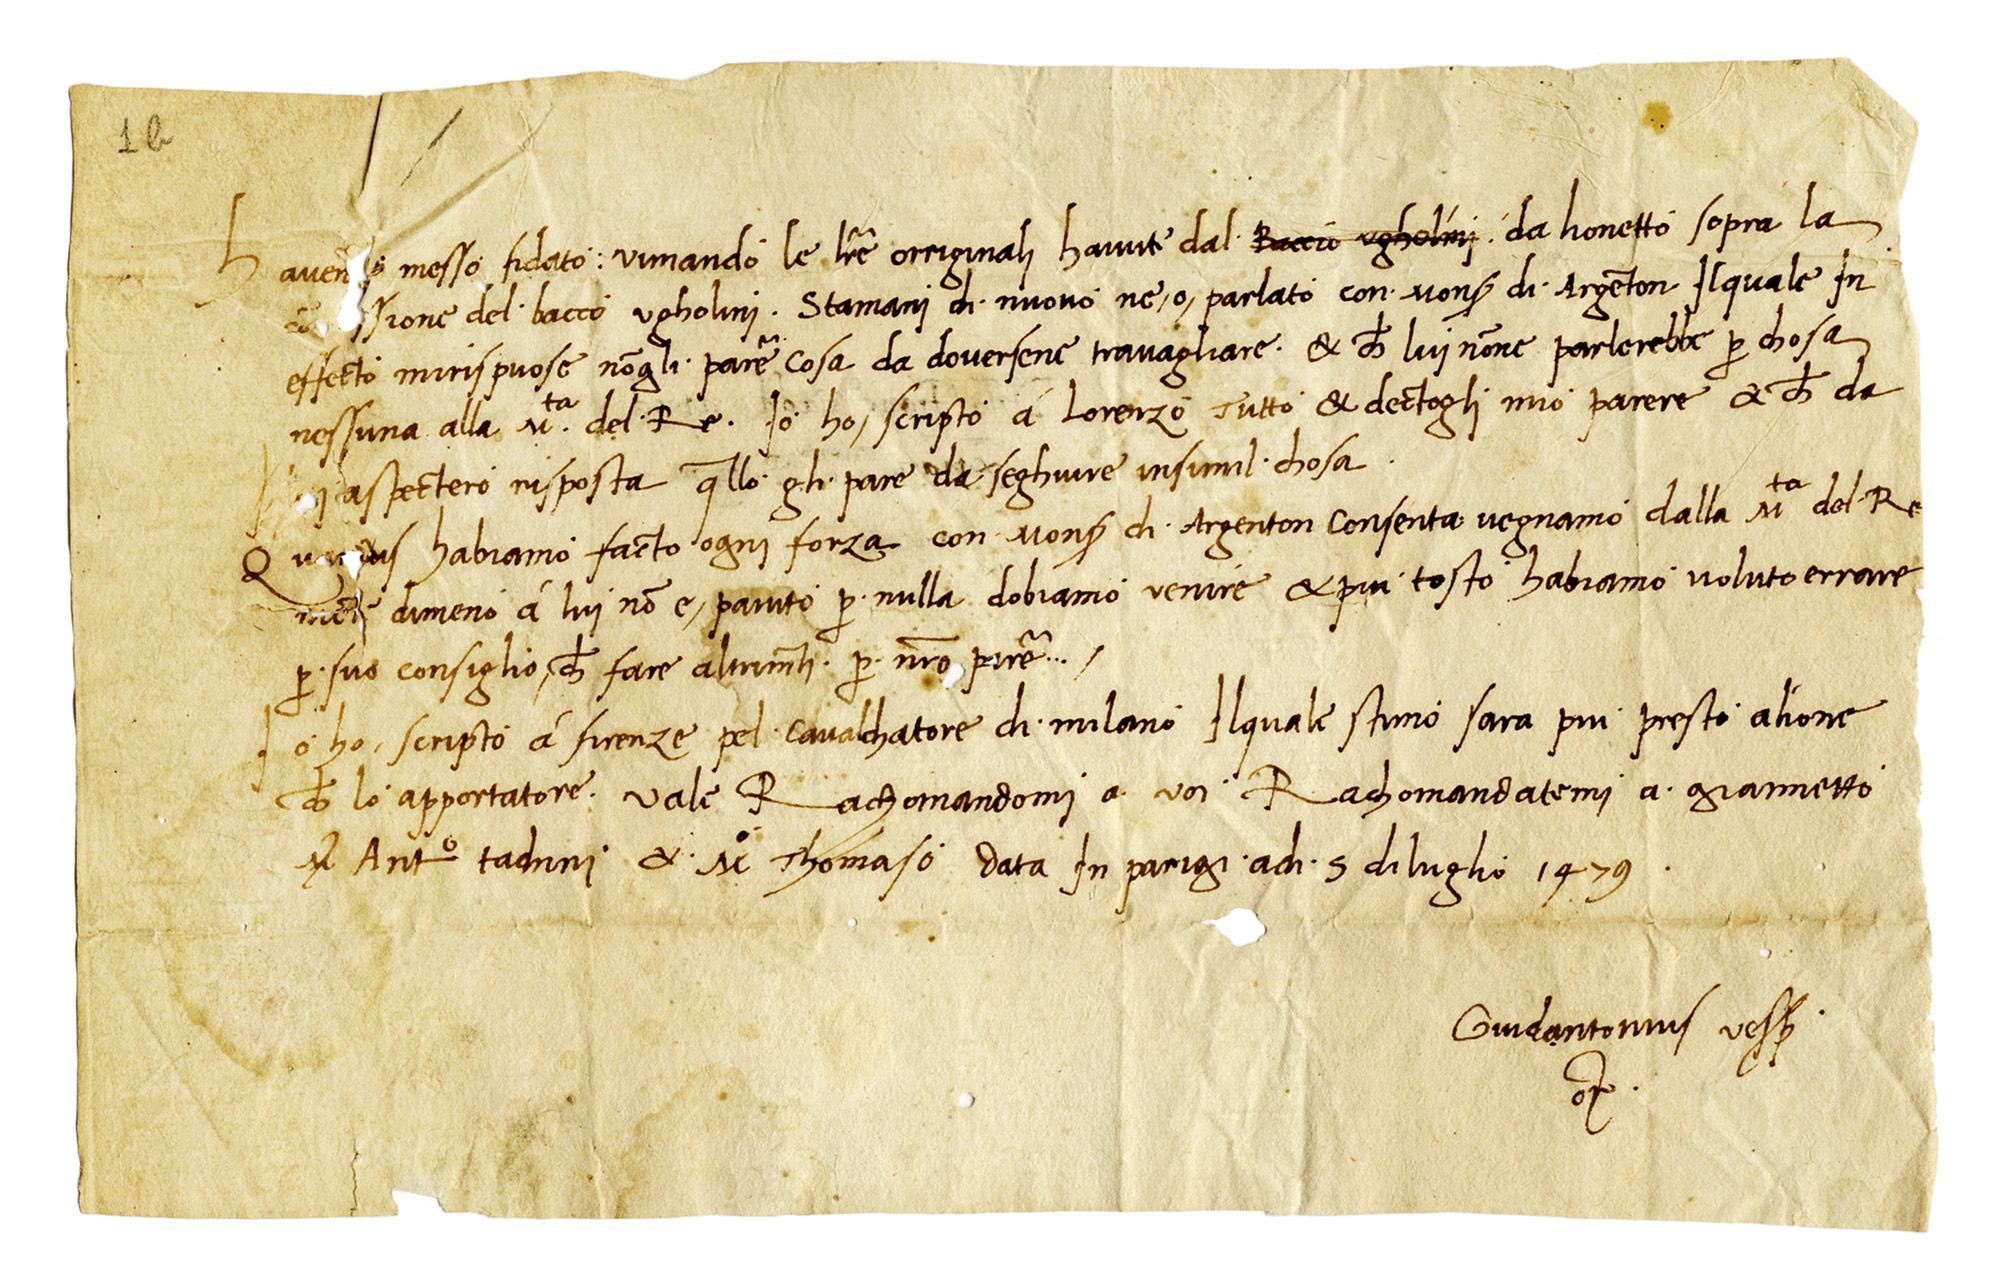 1 b
Havendo messo fidato: vimando le lr̃e orriginali havute dal. Baccio ugholini. da lionetto sopra la
ssione del. bacco ugholini. Stamani di. nuovo ne, o, parlato con. Mons. di. Argẽton Ilquale In
effecto mirispuose nõgli. parẽ cosa da doversene travagliare. & ch̃ lui nõne parlerebbe ꝑ chosa
nessuna alla M.ta del. Re. Io ho, scripto á Lorenzo Tutto & dectogli mio parere & ch̃ da
aspectero risposta q̃llo. gli. pare da seghuire insimil. chosa.
habiamo facto ogni forza con. Mons. di. Argenton Consenta vegnamo dalla M.ta del. Re
dimeno á lui nõ e, paruto ꝑ. nulla dobiamo venire & piu tosto habiamo voluto errare
ꝑ. suo consiglio, ch̃ fare altrimẽti. ꝑ. nr̃o parẽ... /
Io ho, scripto á firenze pel cavalchatore di. milano Ilquale stimo sara piu presto alione
ch̃ lo apportatore. Vale Rachomandomi a voi Rachomandatemi a. giannetto
M Ant.o tadini & M.o Thomaso Data In parigi. adi. 5 di luglio 1479.
Guidantonius vesp.
or.